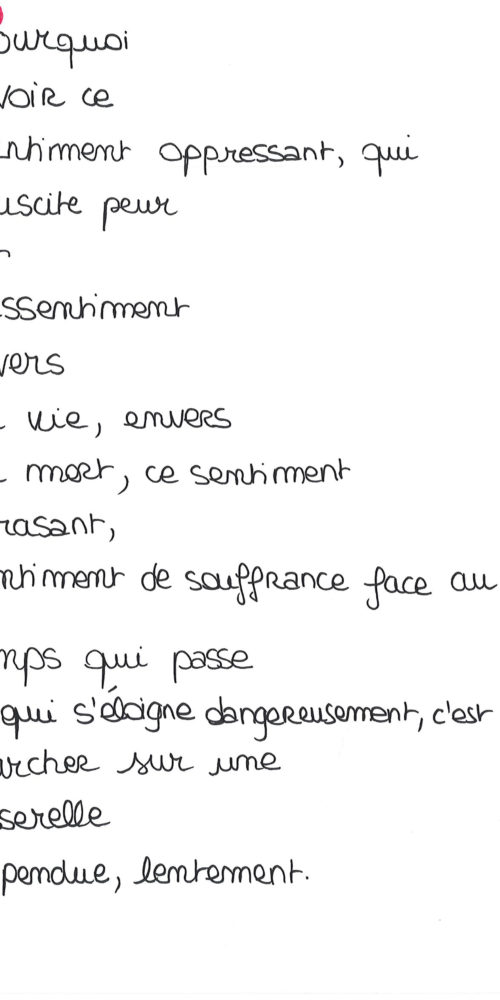 ourquoi
voir ce
ntiment oppressant, qui
uscite peur
ssentiment
vers
vie, envers
mort, ce sentiment
rasant,
ntiment de souffrance face au
mps qui passe
qui s'éloigne dangereusement, c'est
archer sur une
serelle
pendue, lentement.